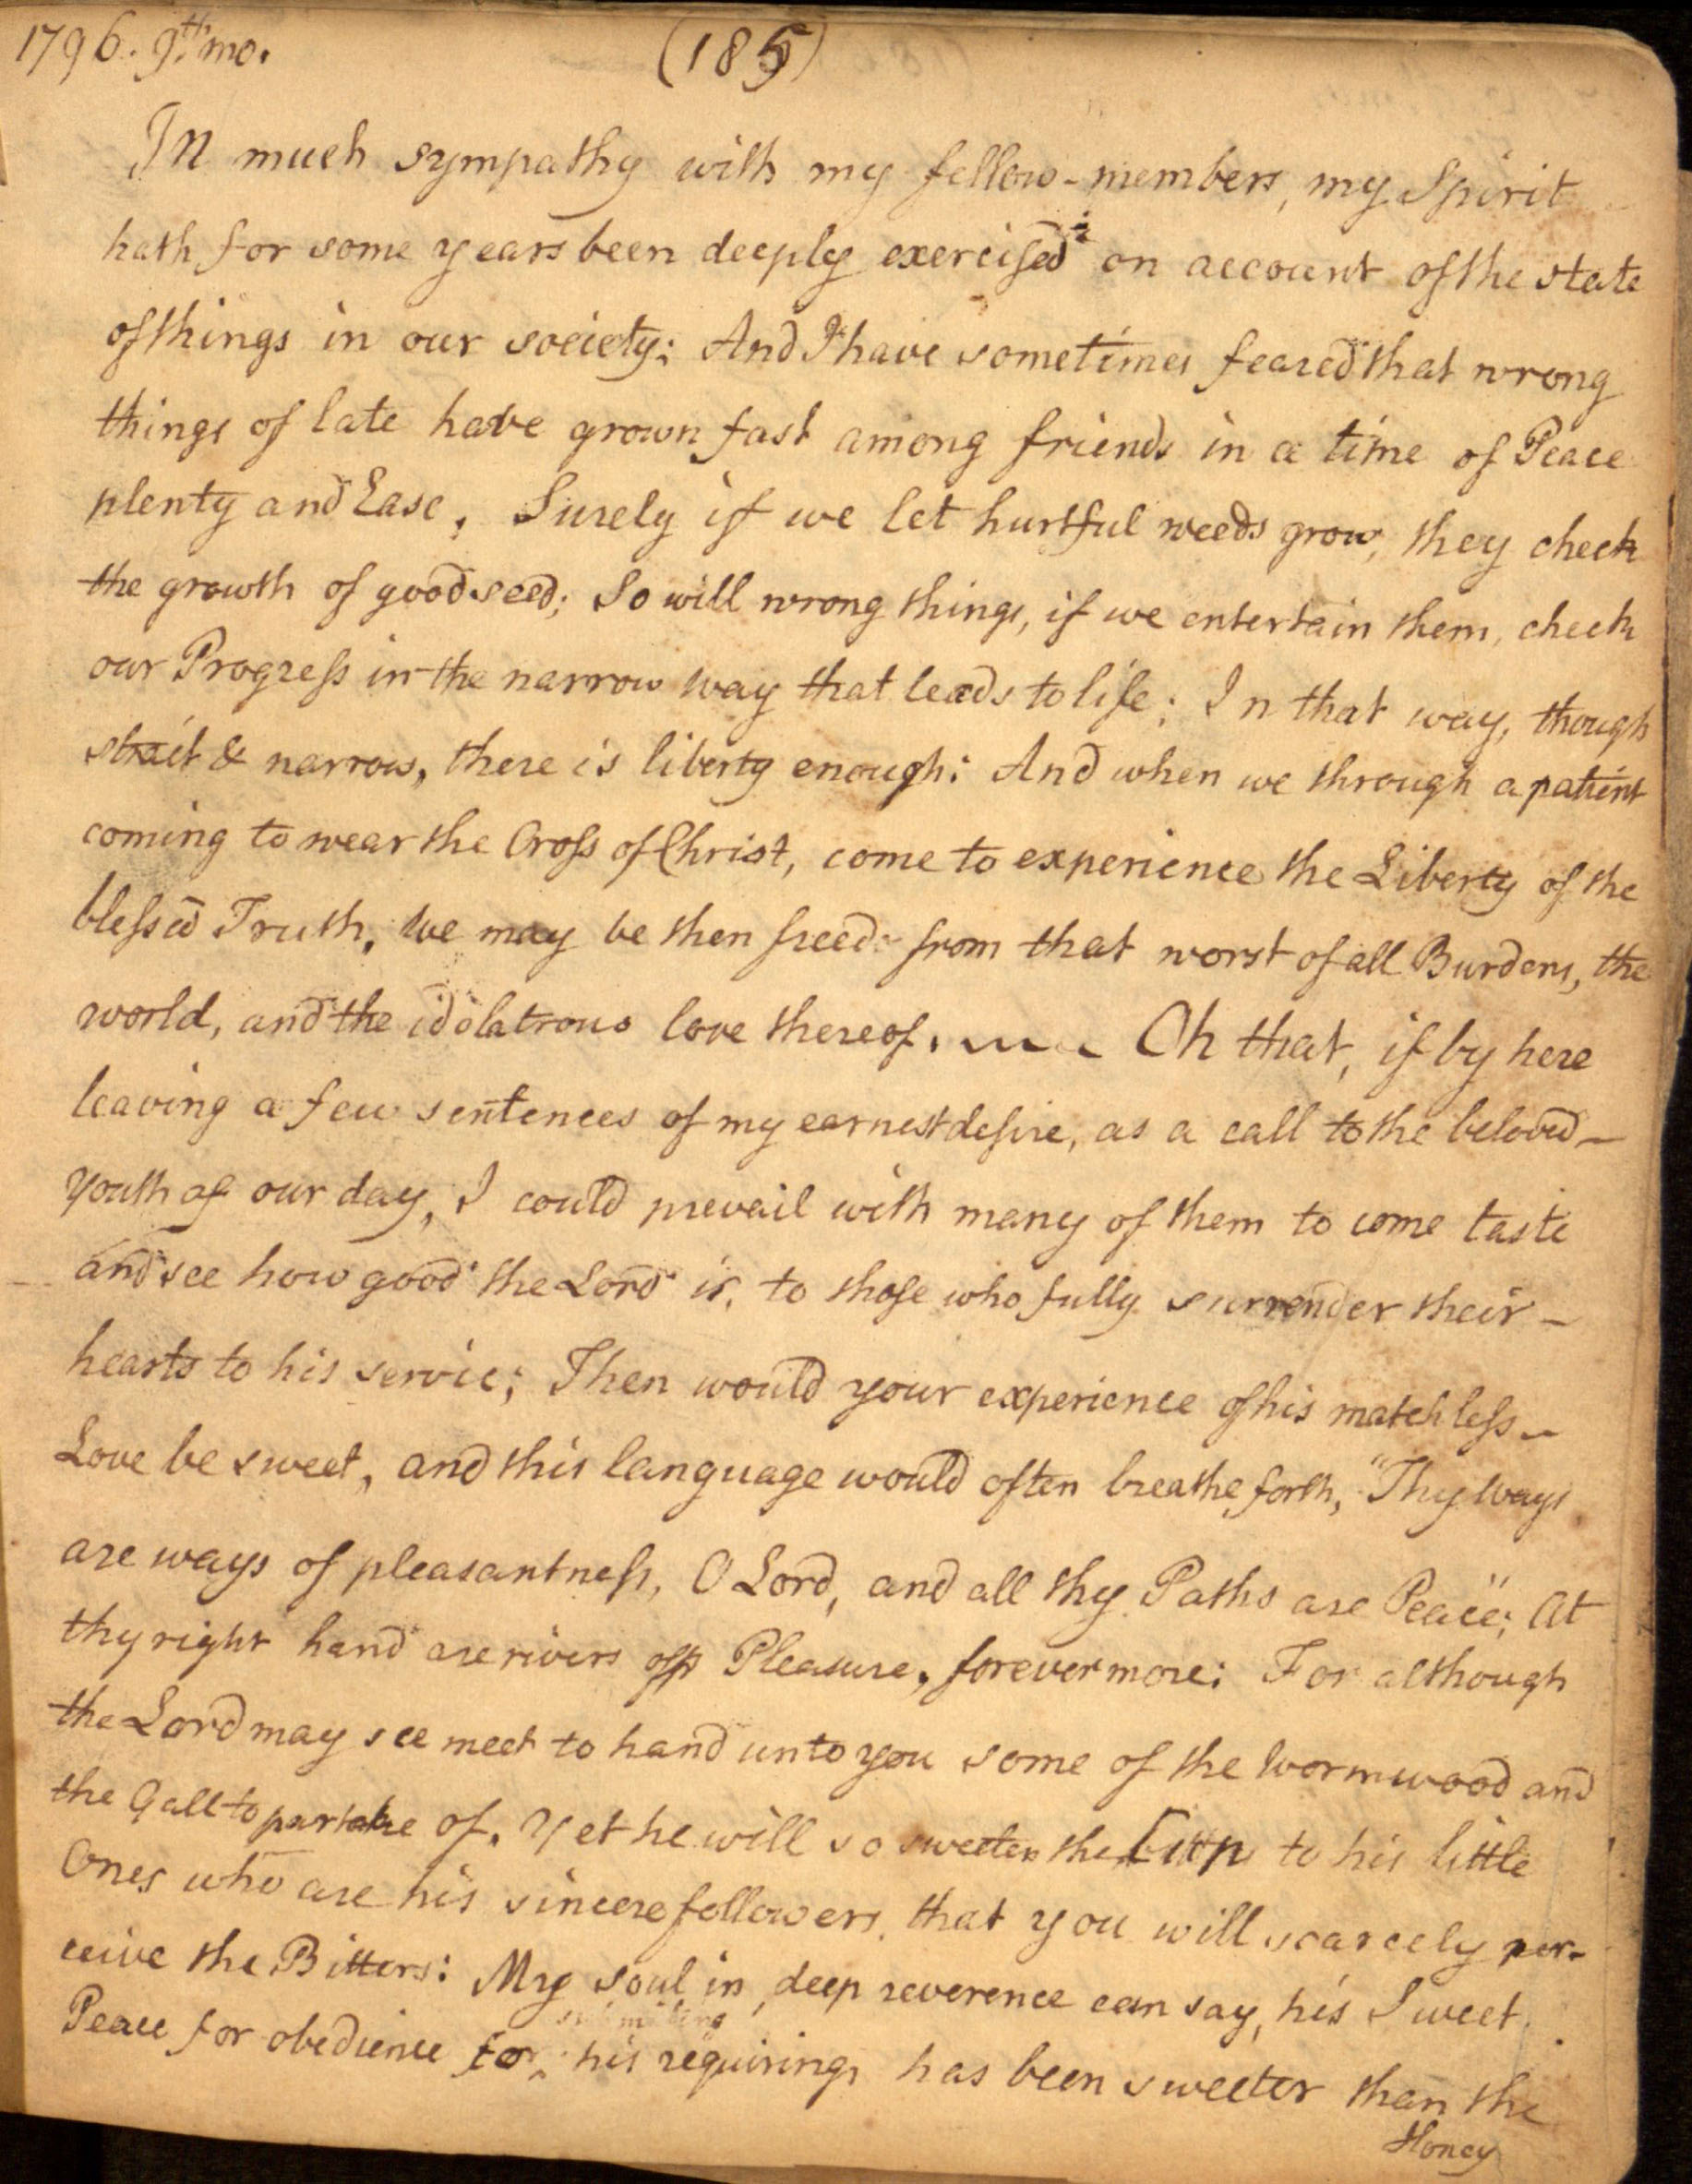 1796. 9th mo. (185)
In much sympathy with my fellow-members, my Spirit
hath for some years been deeply exercised on account of the state
of things in our society: And I have sometimes feared that wrong
things of late have grown fast among friends in a time of Peace
plenty and Ease. Surely if we let hurtful weeds grow, they check
the growth of good seed; So will wrong things, if we entertain them, check
our Progress in the narrow way that leads to life; In that way, though
strait & narrow, there is liberty enough: And when we through a patient
coming to wear the Cross of Christ, come to experience the Liberty of the
blessed Truth, We may be then freed from that worst of all Burdens, the
world, and the idolatrous love thereof. Oh that, if by here
leaving a few sentences of my earnest desire, as a call to the beloved
Youth of our day, I could prevail with many of them to come taste
and see how good the Lord is, to those who fully surrender their
hearts to his servic; Then would your experience of his matchless
Love be sweet, and this language would often breathe forth, "Thy Ways
are ways of pleasantness, O Lord, and all thy Paths are Peace"; At
thy right hand are rivers of Pleasure, forevermore: For although
the Lord may see meet to hand unto you some of the Wormwood and
the Gall to partake of, Yet he will so sweeten the Cup to his little
Ones who are his sincere followers, that you will scarcely per-
ceive the Bitters: My soul in deep reverence can say, his Sweet
Peace for obedience to his requirings has been sweeter than the
Honey